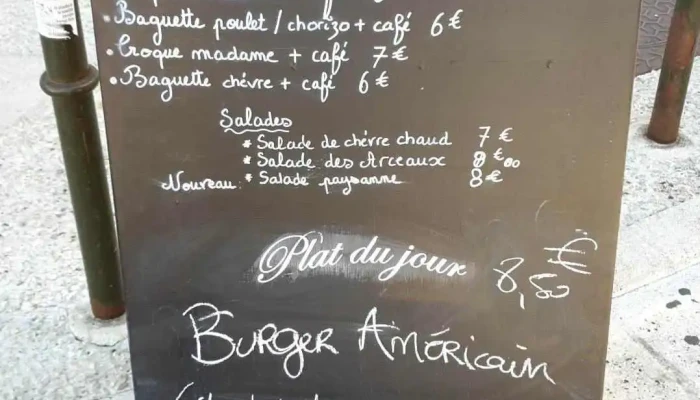 • Baguette poulet / chorizo + café 6 €
• Croque madame + café 7 €
• Baguette chèvre + café 6 €
Salades
* Salade de chèvre chaud 7 €
* Salade des Arceaux 8 €00
Nouveau: * Salade paysanne 8 €
Plat du jour 8,50 €
Burger Américain